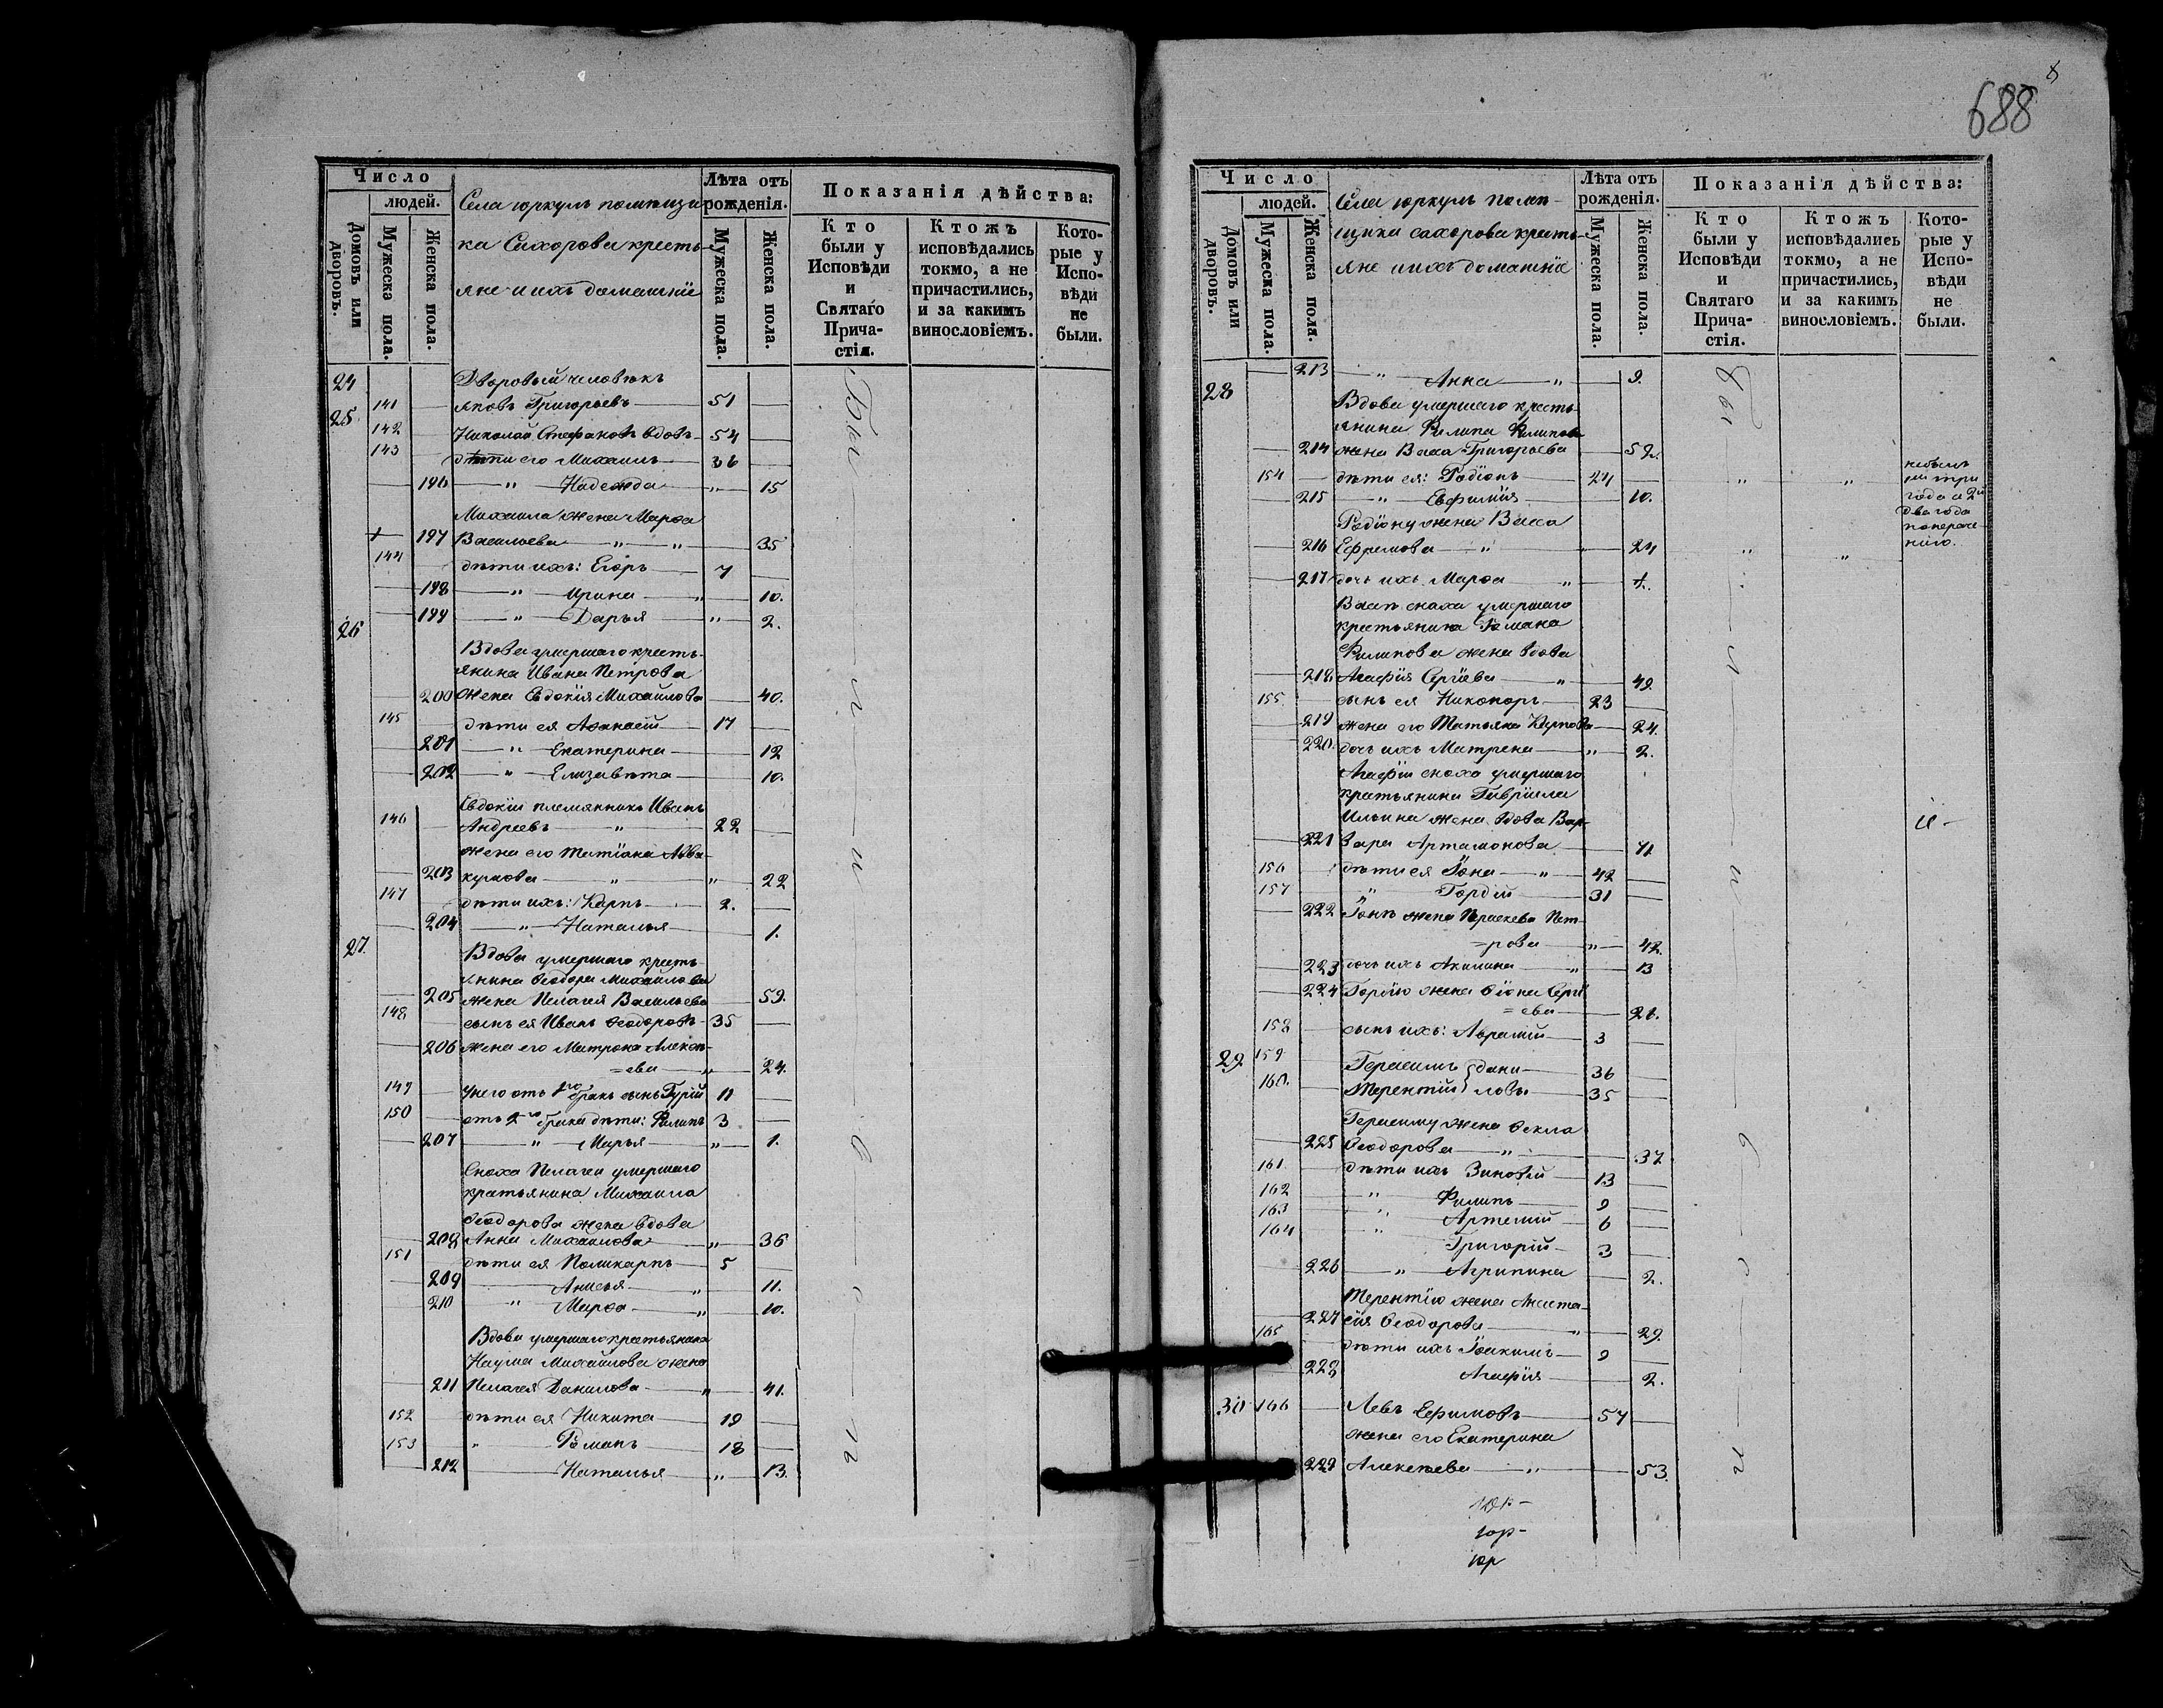 688
Число
людей.
Домовъ или дворовъ.
Мужеска пола.
Женска пола.
Села юркуль помѣщи
ка Сахорова кресть-
яне и ихъ домашніе
Лѣта отъ рожденія.
Мужеска пола.
Женска пола.
Показанія дѣйства:
Кто были у Исповѣди и Святаго Причастія.
Ктожъ исповѣдались токмо, а не причастились, и за какимъ винословіемъ.
Которые у Исповѣди не были.
24 Дворовый человѣкъ
141 яковъ Григорьевъ 51
25
142 Николай Стефановъ вдовъ 54
143 дѣти его Михаилъ 36
196 " Надежда " 15
Михаила жена Марѳа
197 Васильева " " 35
144 дѣти ихъ: Егоръ 7
198 " Ирина " 10.
199 " Дарья " 2.
26
Вдова умершаго кресть-
янина Ивана Петрова
200 жена Евдокія Михайлова 40.
145 дѣти ея Аѳанасій 17
201 " Екатерина 12
202 " Елизавѣта 10.
Евдокіи племянникъ Иванъ
146 Андреевъ " 22
жена его Татіана Авва-
203 кумова " " 22
147 дѣти ихъ: Карпъ 2.
204 " Наталья 1.
27.
Вдова умершаго кресть-
янина Ѳеодора Михайлова
205 жена Пелагея Васильева 59.
148 сынъ ея Иванъ Ѳеодоровъ 35
206 жена его Матрона Алексѣ-
=ева " 24.
149 У него отъ 1го брака сынъ Гурій 11
150 отъ 2го брака дѣти: Филипъ 3
207 " Марья " 1.
Сноха Пелагеи умершаго
крестьянина Михаила
Ѳеодорова жена вдова
208 Анна Михаилова " 36
151 дѣти ея Поликарпъ 5
209 Анисья " 11.
210 " Марѳа " 10.
Вдова умершаго крестьянина
Наума Михайлова жена
211 Пелагея Данилова " 41.
152 дѣти ея Никита 19
153 " Романъ 18
212 Наталья " 13.
Число
людей.
Домовъ или дворовъ.
Мужеска пола.
Женска пола.
Села юркуль помѣ-
щика сахорова кресть-
яне и ихъ домашніе
Лѣта отъ рожденія.
Мужеска пола.
Женска пола.
Показанія дѣйства:
Кто были у Исповѣди и Святаго Причастія.
Ктожъ исповѣдались токмо, а не причастились, и за какимъ винословіемъ.
Которые у Исповѣди не были.
213 " Анна " 9.
28
Вдова умершаго кресть-
янина Филипа Филипова
214 жена Васса Григорьева 52.
154 дѣти ея: Родіонъ 24 " "
215 " Евфимія 10.
Родіону жена Васса
216 Ефремова " 24 " "
217 дочь ихъ Марѳа "
Вассы сноха умершаго
крестьянина Романа
Филипова жена вдова
218 Агафія Сергіева " 49.
155 сынъ ея Никоноръ 23
219 жена его Татьяна Карпова 24.
220. дочь ихъ Матрена " 2.
Агафіи сноха умершаго
крестьянина Гавріила
Ильина жена вдова Вар-
221 вара Артамонова 71
156 дѣти ея Іона " 42
157 " Гордій 31
222 Іонѣ жена Праскева Пет-
=рова " 42.
223 дочь ихъ Акилина " 13
224 Гордію жена Ѳіона Сергі
=ева 21.
158 сынъ ихъ: Авраамій 3
29 159 Герасимъ } дани- 36
160. Терентій } ловы 35
Герасиму жена Ѳекла
225 Ѳеодорова " 37
161 дѣти ихъ Зиновій 13
162 " Филипъ 9
163 " Артемій 6
164 " Григорій 3
226 " Агрипина 2.
Терентію жена Анаста-
227 сія Ѳеодорова " 29.
165 дѣти ихъ Іоакимъ 9
228 Агафія 2.
30 166 Левъ Ефимовъ 57
жена его Екатерина
229 Алексѣева " 53.
юр-
юр-
юр